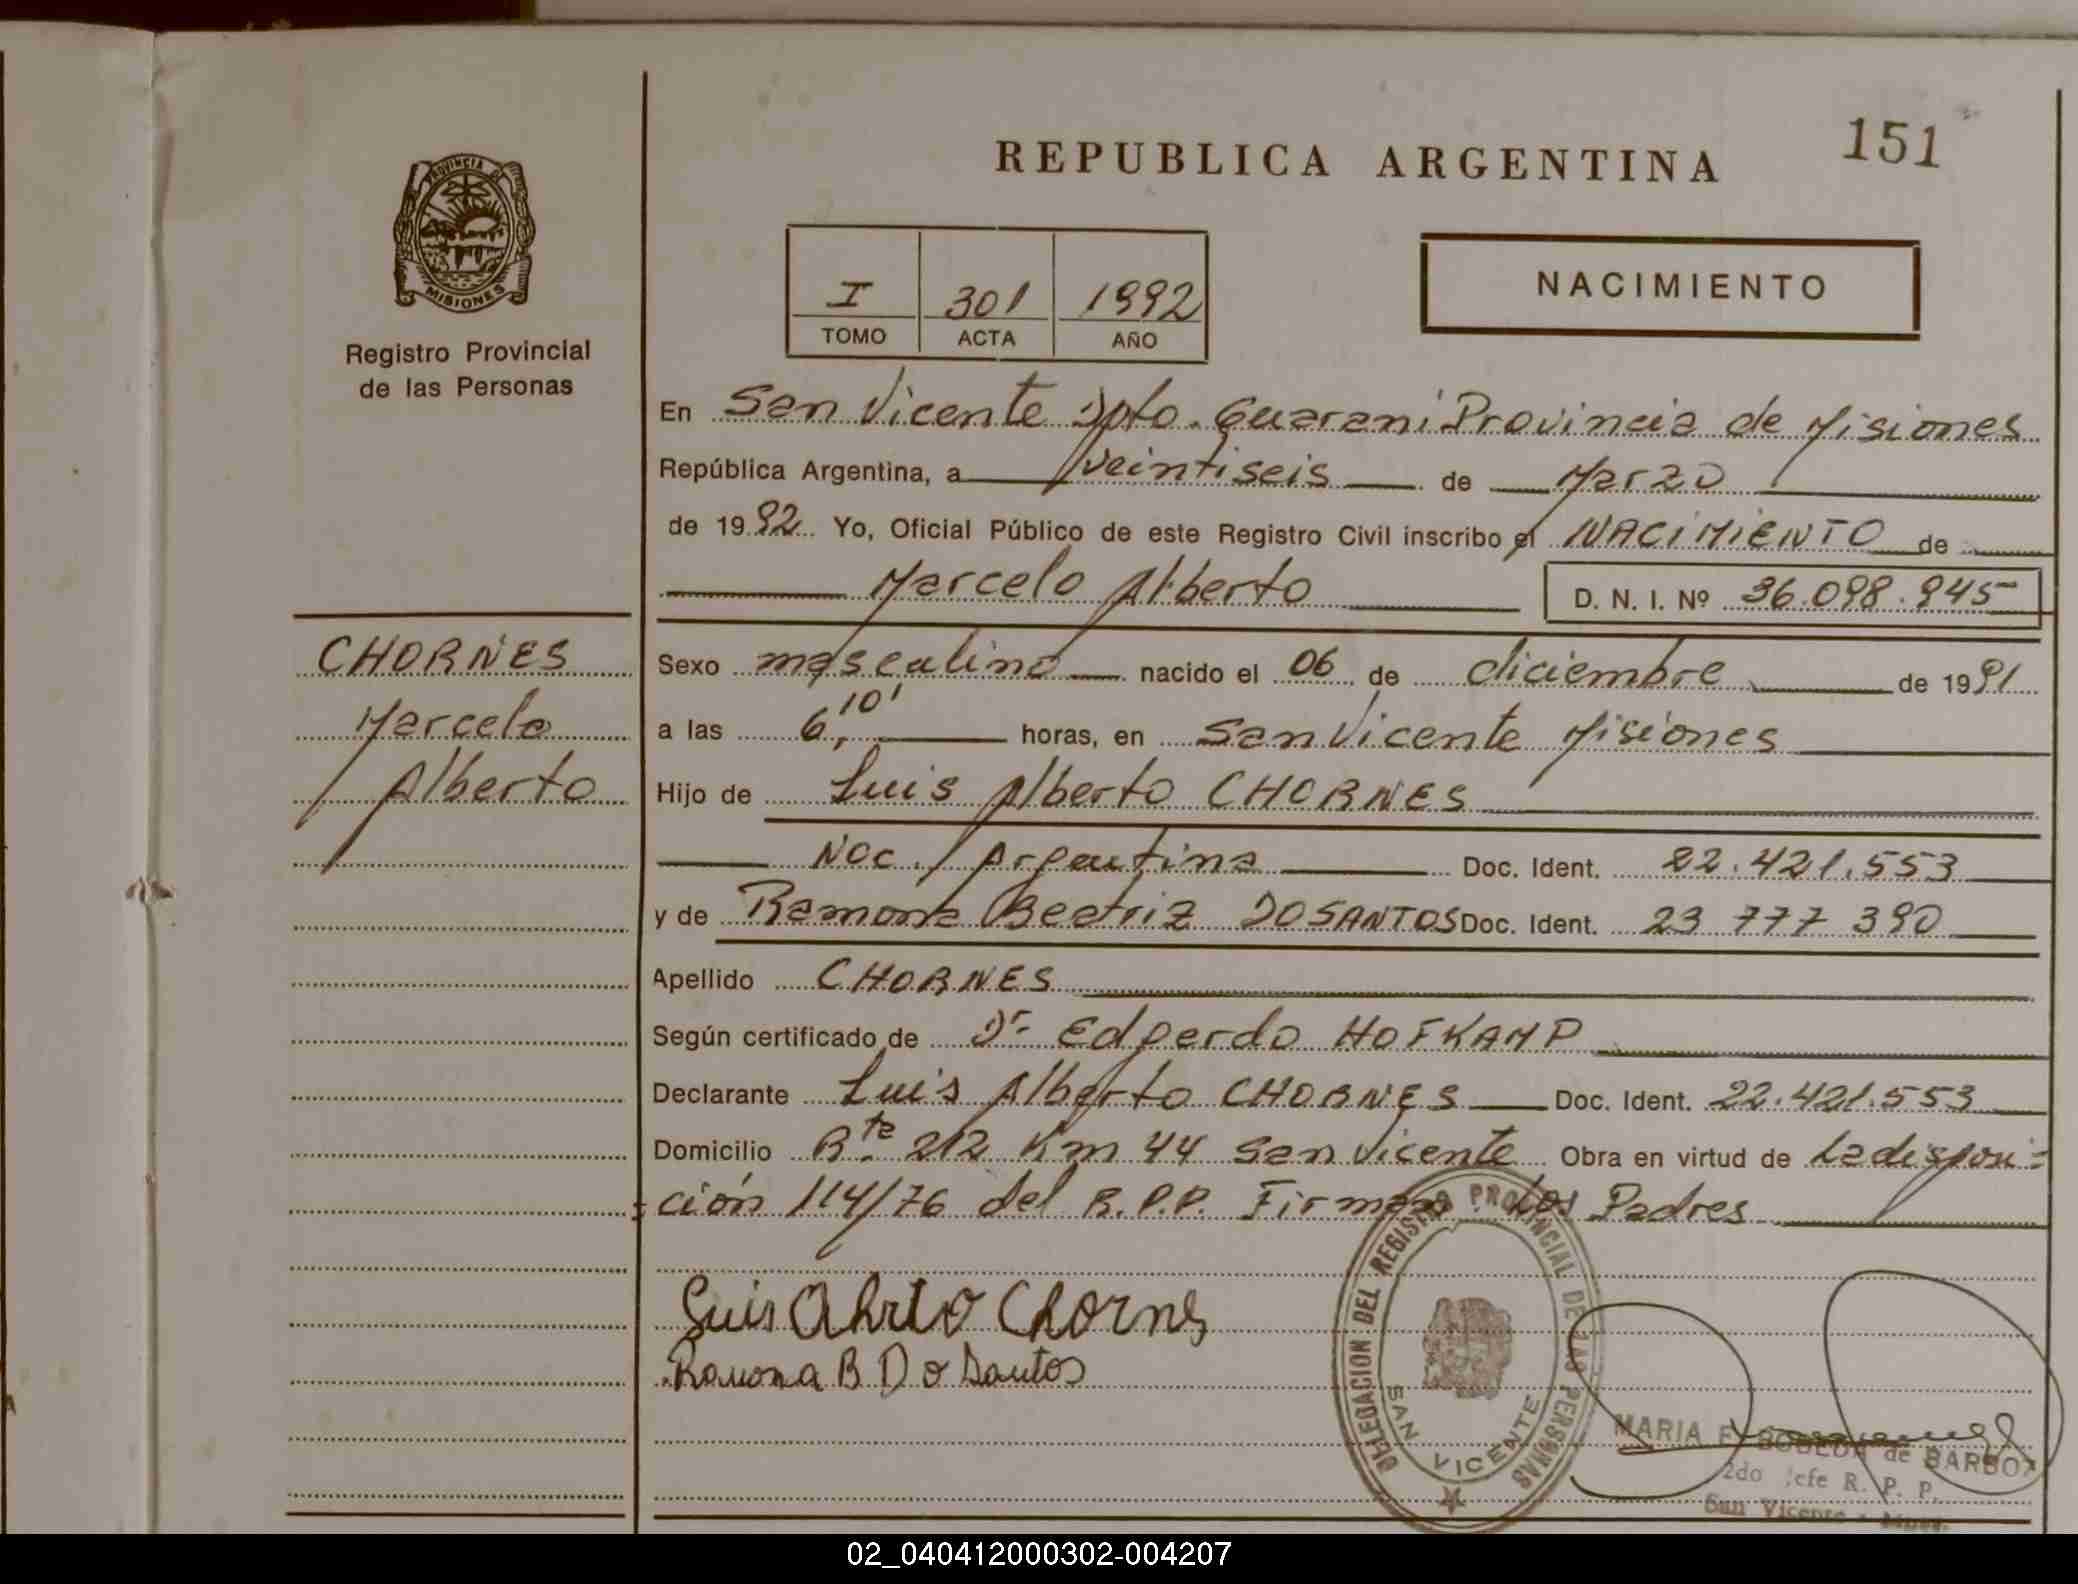 151
REPUBLICA ARGENTINA
PROVINCIA DE
MISIONES
Registro Provincial
de las Personas
I 301 1992
TOMO ACTA AÑO
NACIMIENTO
En San Vicente Dpto. Guaraní Provincia de Misiones
República Argentina, a veintiseis de Marzo
de 1992 Yo, Oficial Público de este Registro Civil inscribo el NACIMIENTO de
Marcelo Alberto D. N. I. Nº 36.098.945
CHORNES
Marcelo
Alberto
Sexo masculino nacido el 06 de diciembre de 1991
a las 6,10' horas, en San Vicente Misiones
Hijo de Luis Alberto CHORNES
Nac. Argentina Doc. Ident. 22.421.553
y de Ramona Beatriz DOSANTOS Doc. Ident. 23 777 390
Apellido CHORNES
Según certificado de Dr Edgardo HOFKAMP
Declarante Luis Alberto CHORNES Doc. Ident. 22.421.553
Domicilio Rte. 212 Km 44 San Vicente Obra en virtud de La disposi=
=ción 114/76 del R.P.P. Firman: Los Padres
Luis Alberto Chornes
Ramona B D o Santos
DELEGACION DEL REGISTRO PROVINCIAL DE LAS PERSONAS
SAN VICENTE
MARIA E. de BARBOZA
2do Jefe R. P. P.
San Vicente - Mnes.
02_040412000302-004207